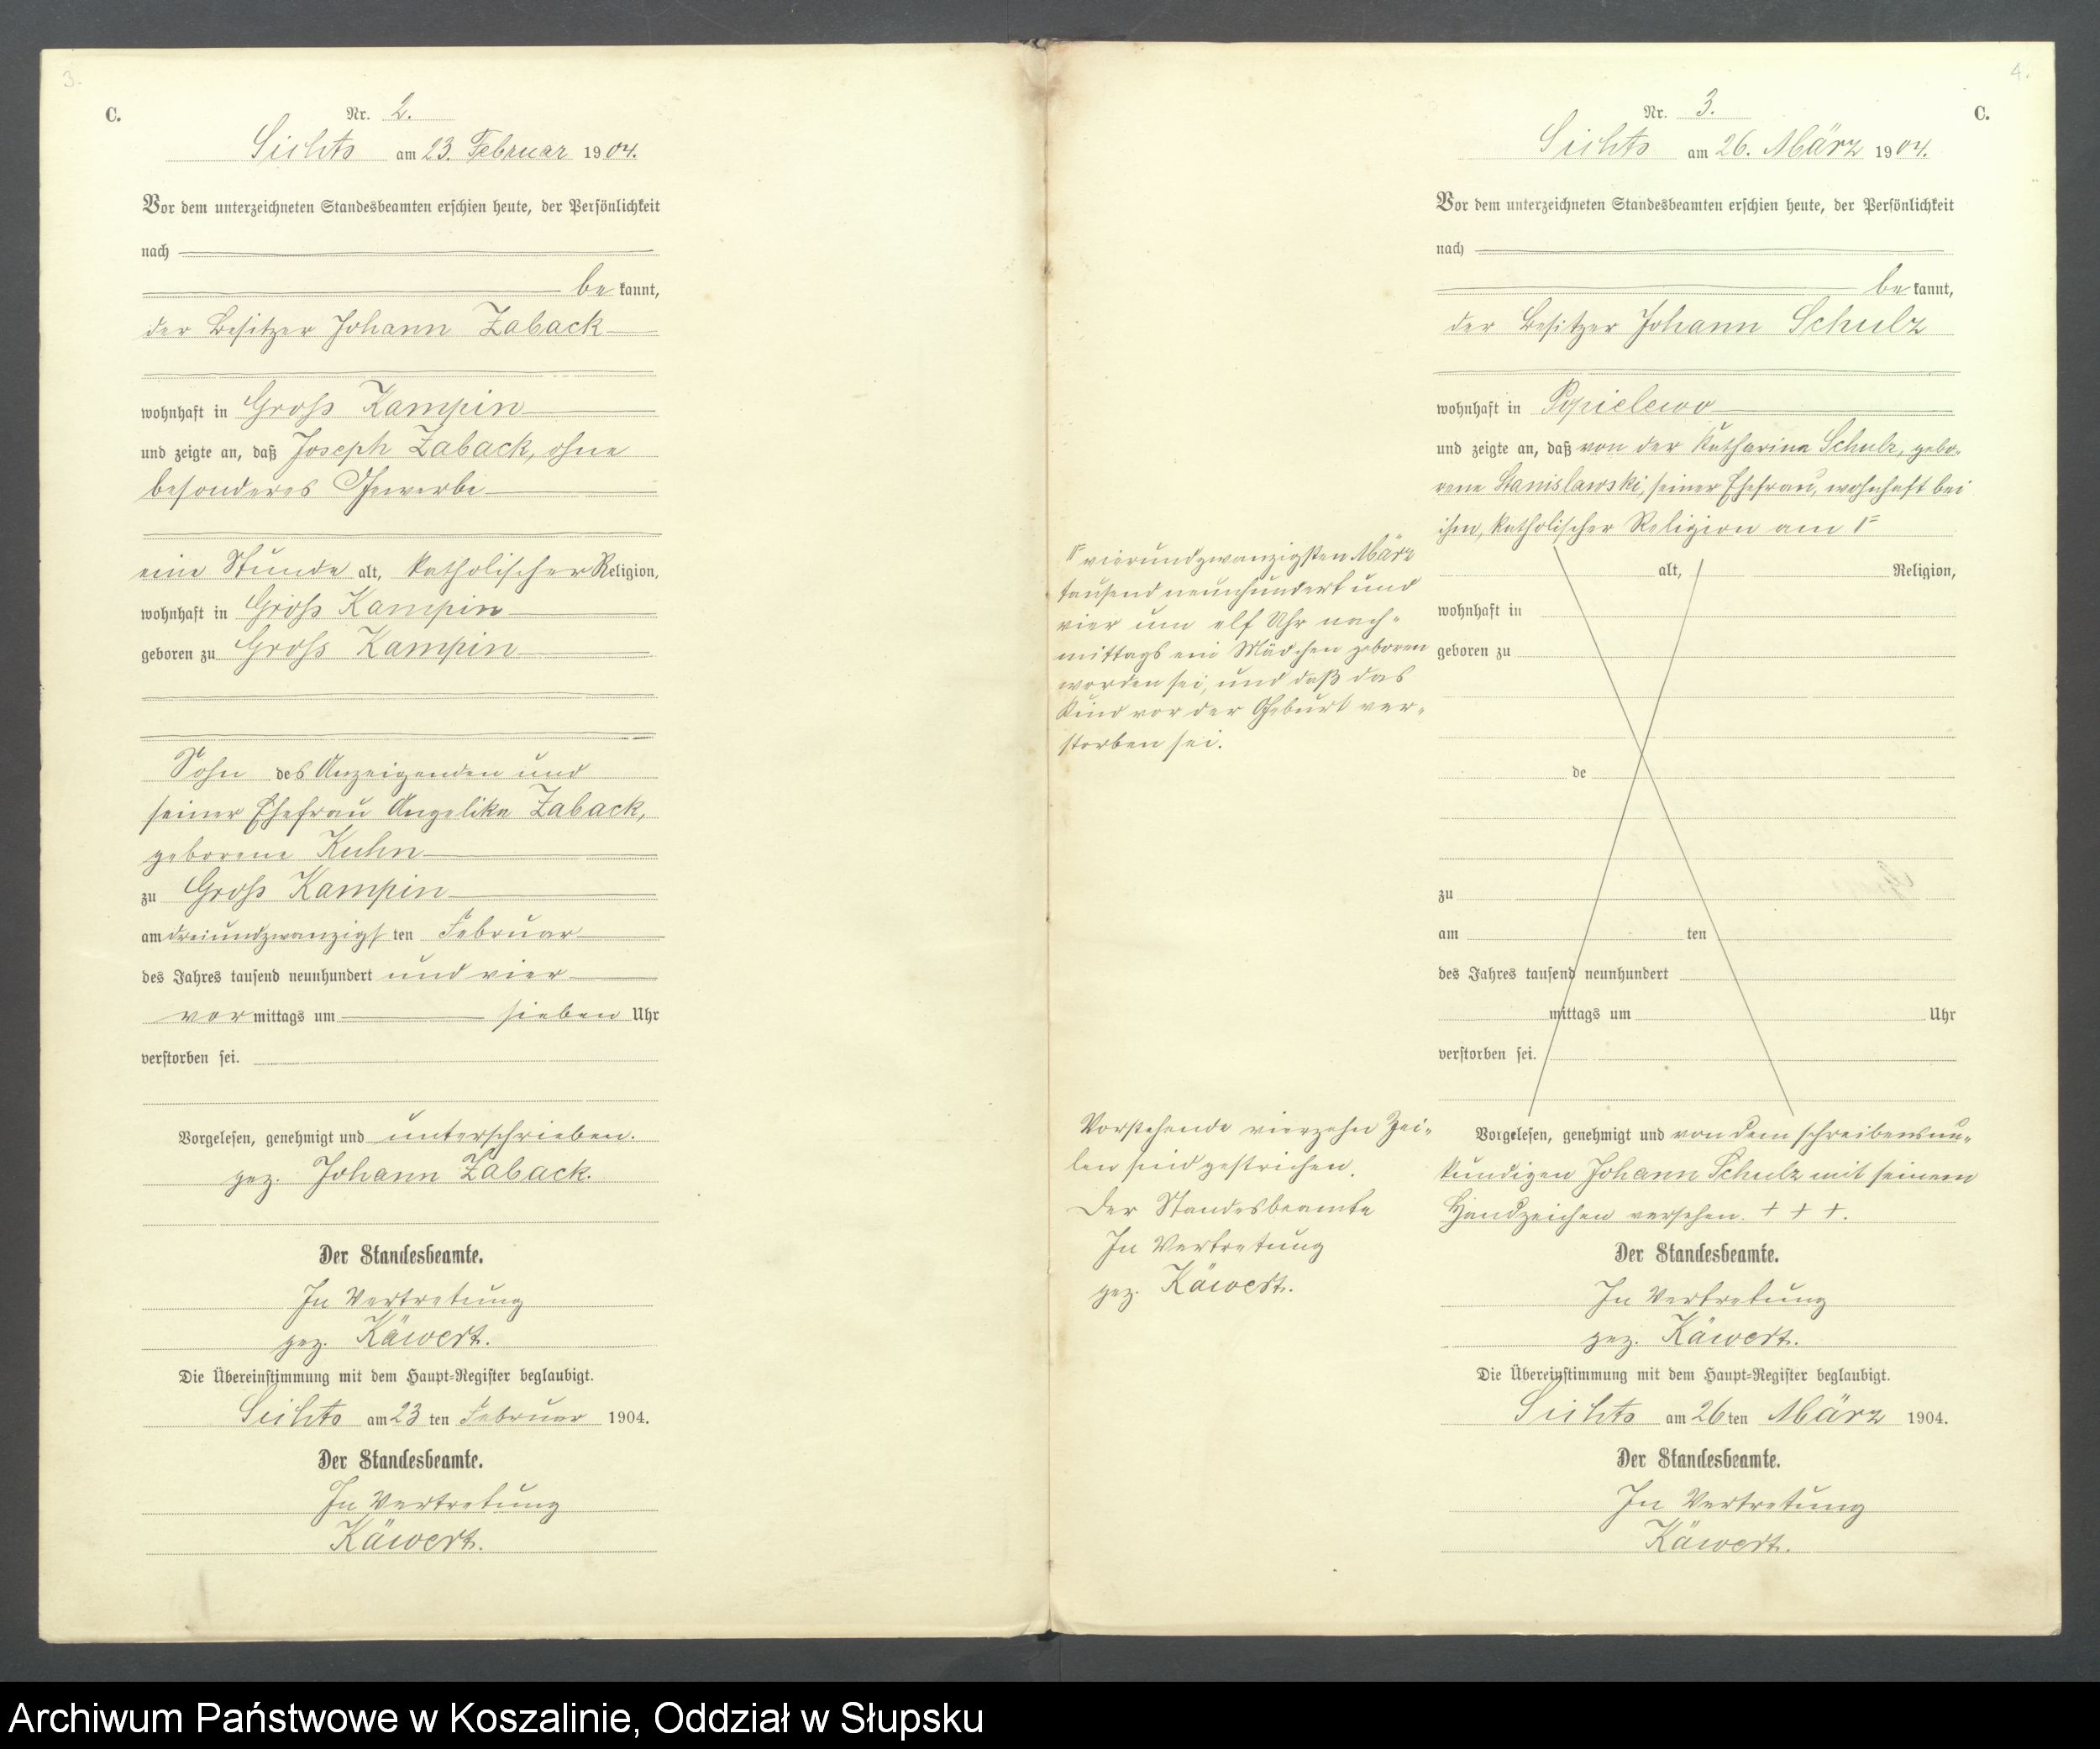 3.
C.
Nr. 2.
Sichts am 23. Februar 1904.
Vor dem unterzeichneten Standesbeamten erschien heute, der Persönlichkeit
nach
be kannt,
der Besitzer Johann Zaback
wohnhaft in Gross Kampin
und zeigte an, daß Joseph Zaback, ohne
besonderes Gewerbe
eine Stunde alt, katholischer Religion,
wohnhaft in Gross Kampin
geboren zu Gross Kampin
Sohn des Anzeigenden und
seiner Ehefrau Angelika Zaback,
geborene Kuhn
zu Gross Kampin
am dreiundzwanzigsten Februar
des Jahres tausend neunhundert und vier
vor mittags um sieben Uhr
verstorben sei.
Vorgelesen, genehmigt und unterschrieben.
gez. Johann Zaback.
Der Standesbeamte.
In Vertretung
gez. Käwert.
Die Übereinstimmung mit dem Haupt-Register beglaubigt.
Sichts am 23 ten Februar 1904.
Der Standesbeamte.
In Vertretung
Käwert.
4.
C.
Nr. 3.
Sichts am 26. März 1904.
Vor dem unterzeichneten Standesbeamten erschien heute, der Persönlichkeit
nach
be kannt,
der Besitzer Johann Schulz
wohnhaft in Popielewo
und zeigte an, daß von der Katharina Schulz, gebo-
rene Stanislawski, seiner Ehefrau, wohnhaft bei
ihm, katholischer Religion am
vierundzwanzigsten März
tausend neunhundert und
vier um elf Uhr nach-
mittags ein Mädchen geboren
worden sei, und daß das
Kind vor der Geburt ver-
storben sei.
alt, Religion,
wohnhaft in
geboren zu
de
zu
am ten
des Jahres tausend neunhundert
mittags um Uhr
verstorben sei.
Vorstehende vierzehn Zei-
len sind gestrichen.
Der Standesbeamte
In Vertretung
gez. Käwert.
Vorgelesen, genehmigt und von dem schreibensun-
kundigen Johann Schulz mit seinem
Handzeichen versehen. + + +.
Der Standesbeamte.
In Vertretung
gez. Käwert.
Die Übereinstimmung mit dem Haupt-Register beglaubigt.
Sichts am 26 ten März 1904.
Der Standesbeamte.
In Vertretung
Käwert.
Archiwum Państwowe w Koszalinie, Oddział w Słupsku